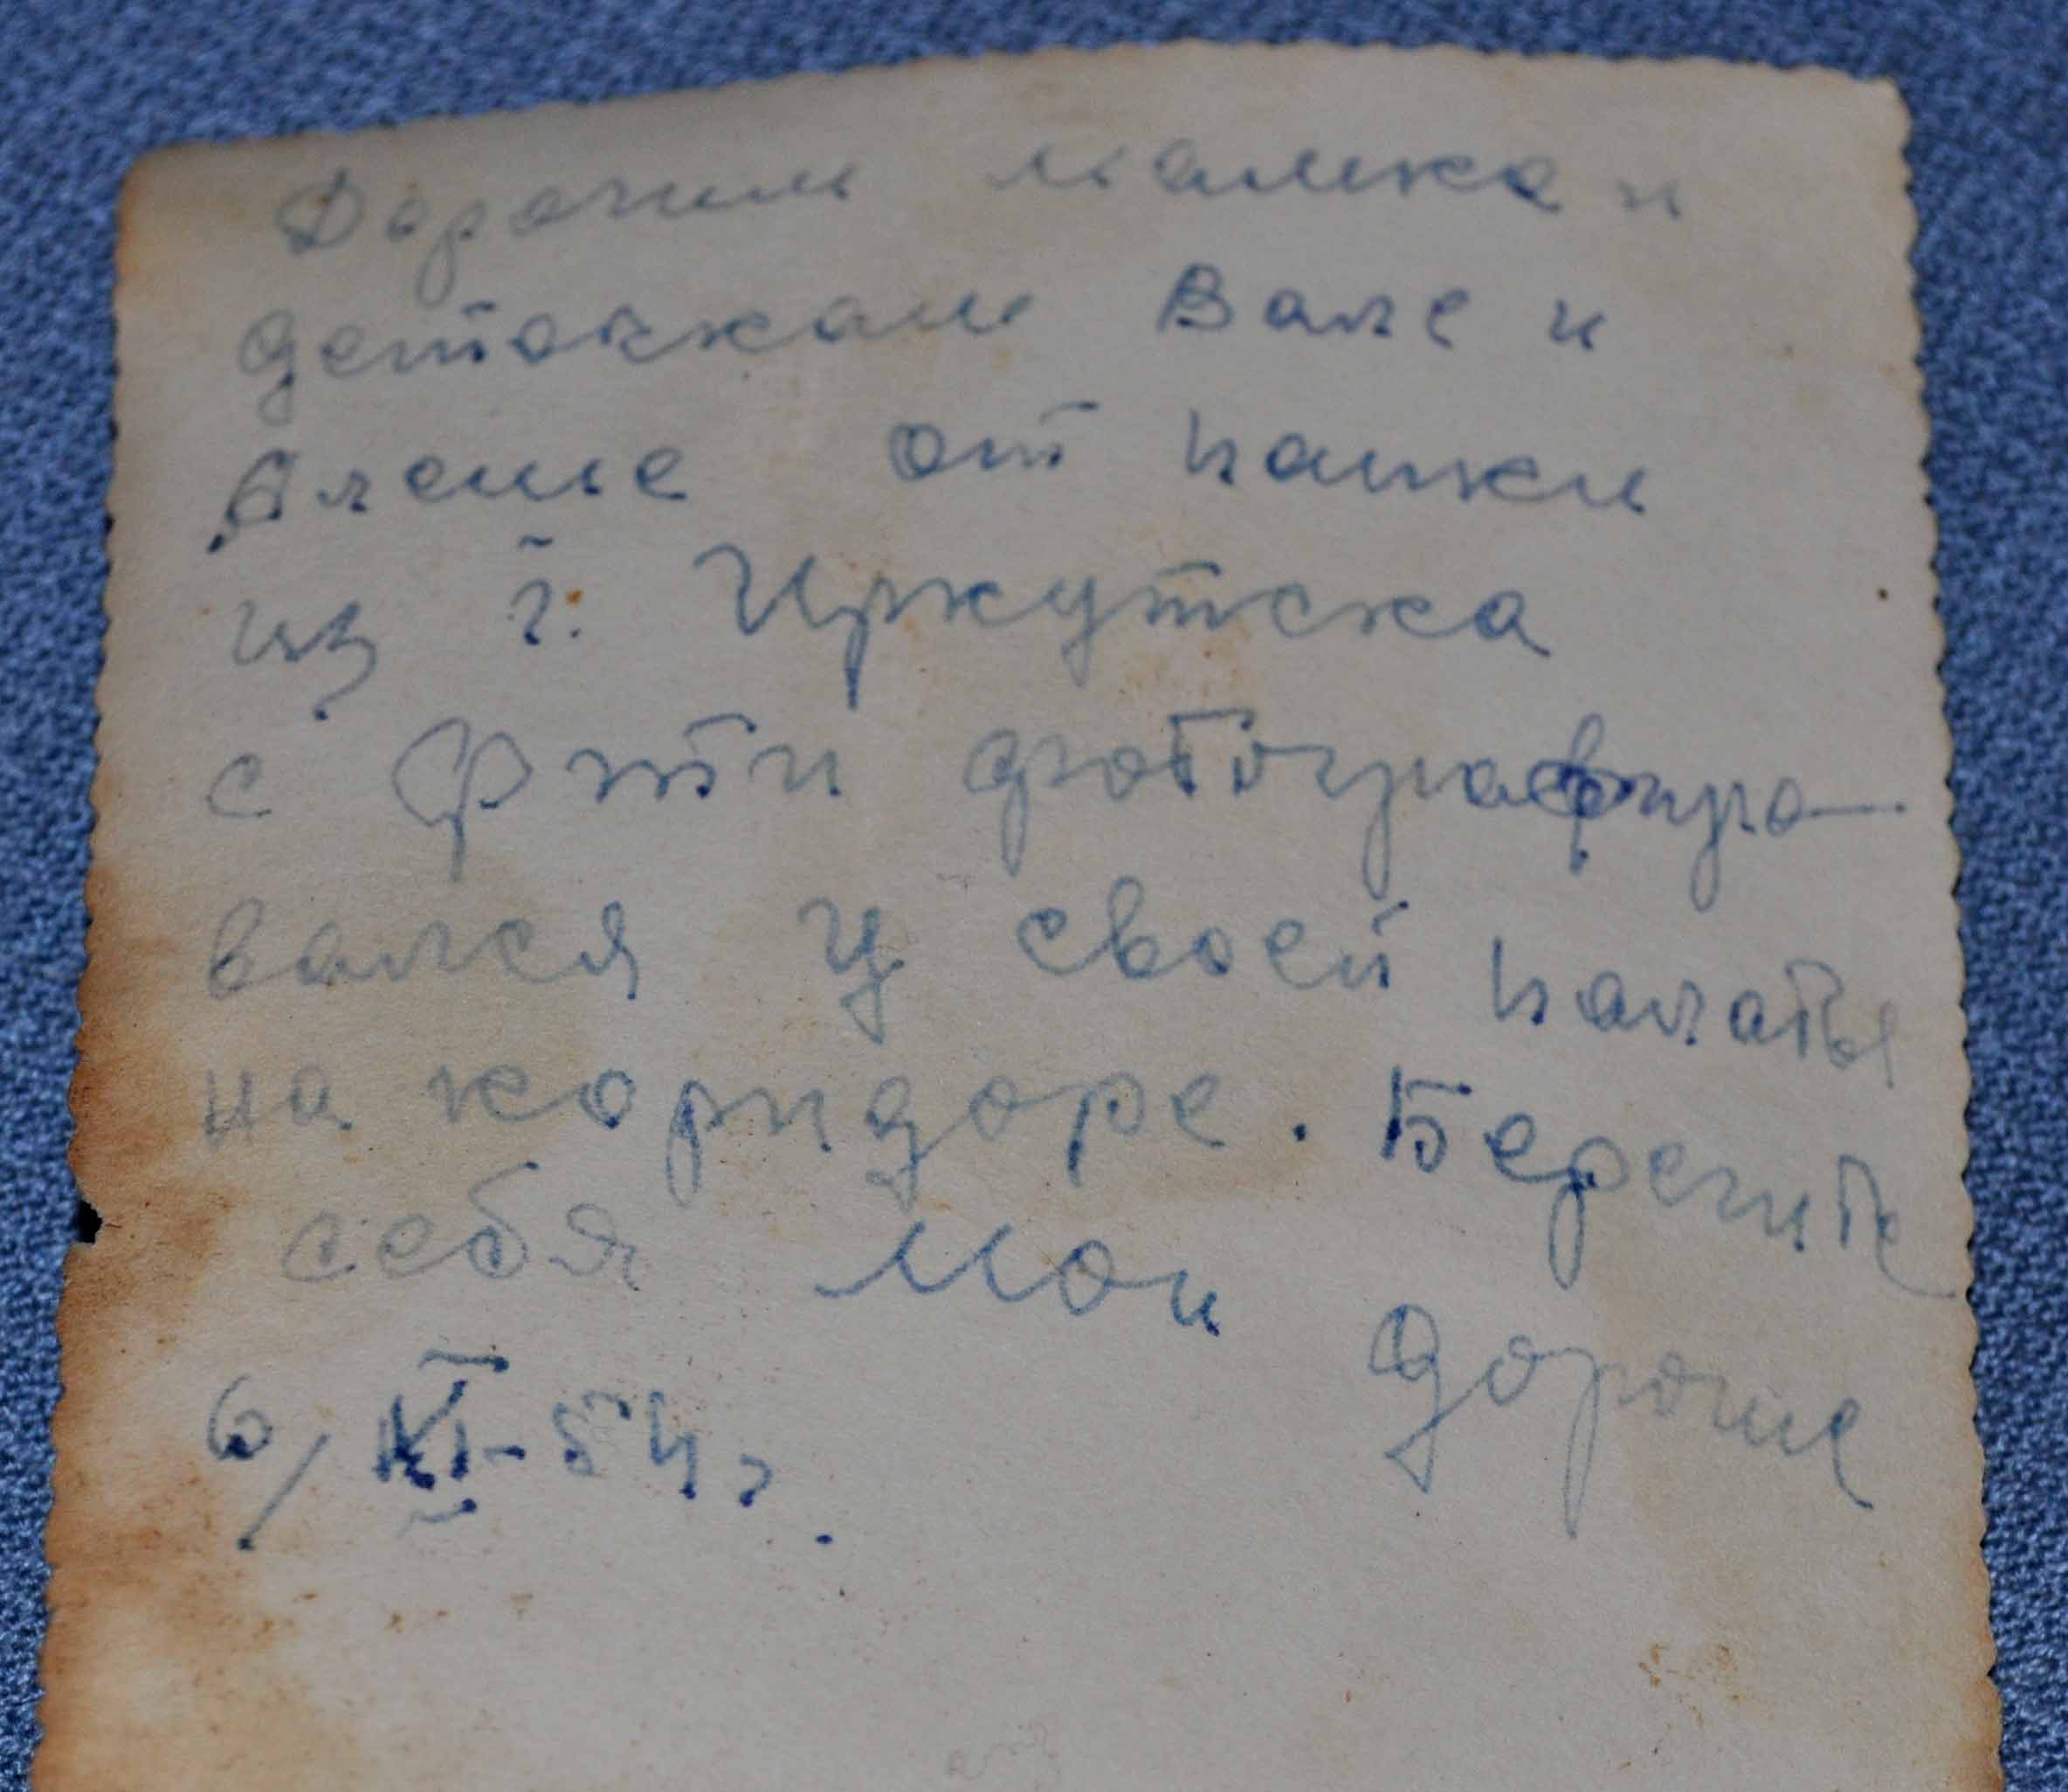 Дорогим мамке и
деточкам Вале и
Алеше от папки
из г. Иркутска
с фотографиро-
вался у своей палаты
на коридоре. Берегите
себя мои дорогие
6/XI-54 г.